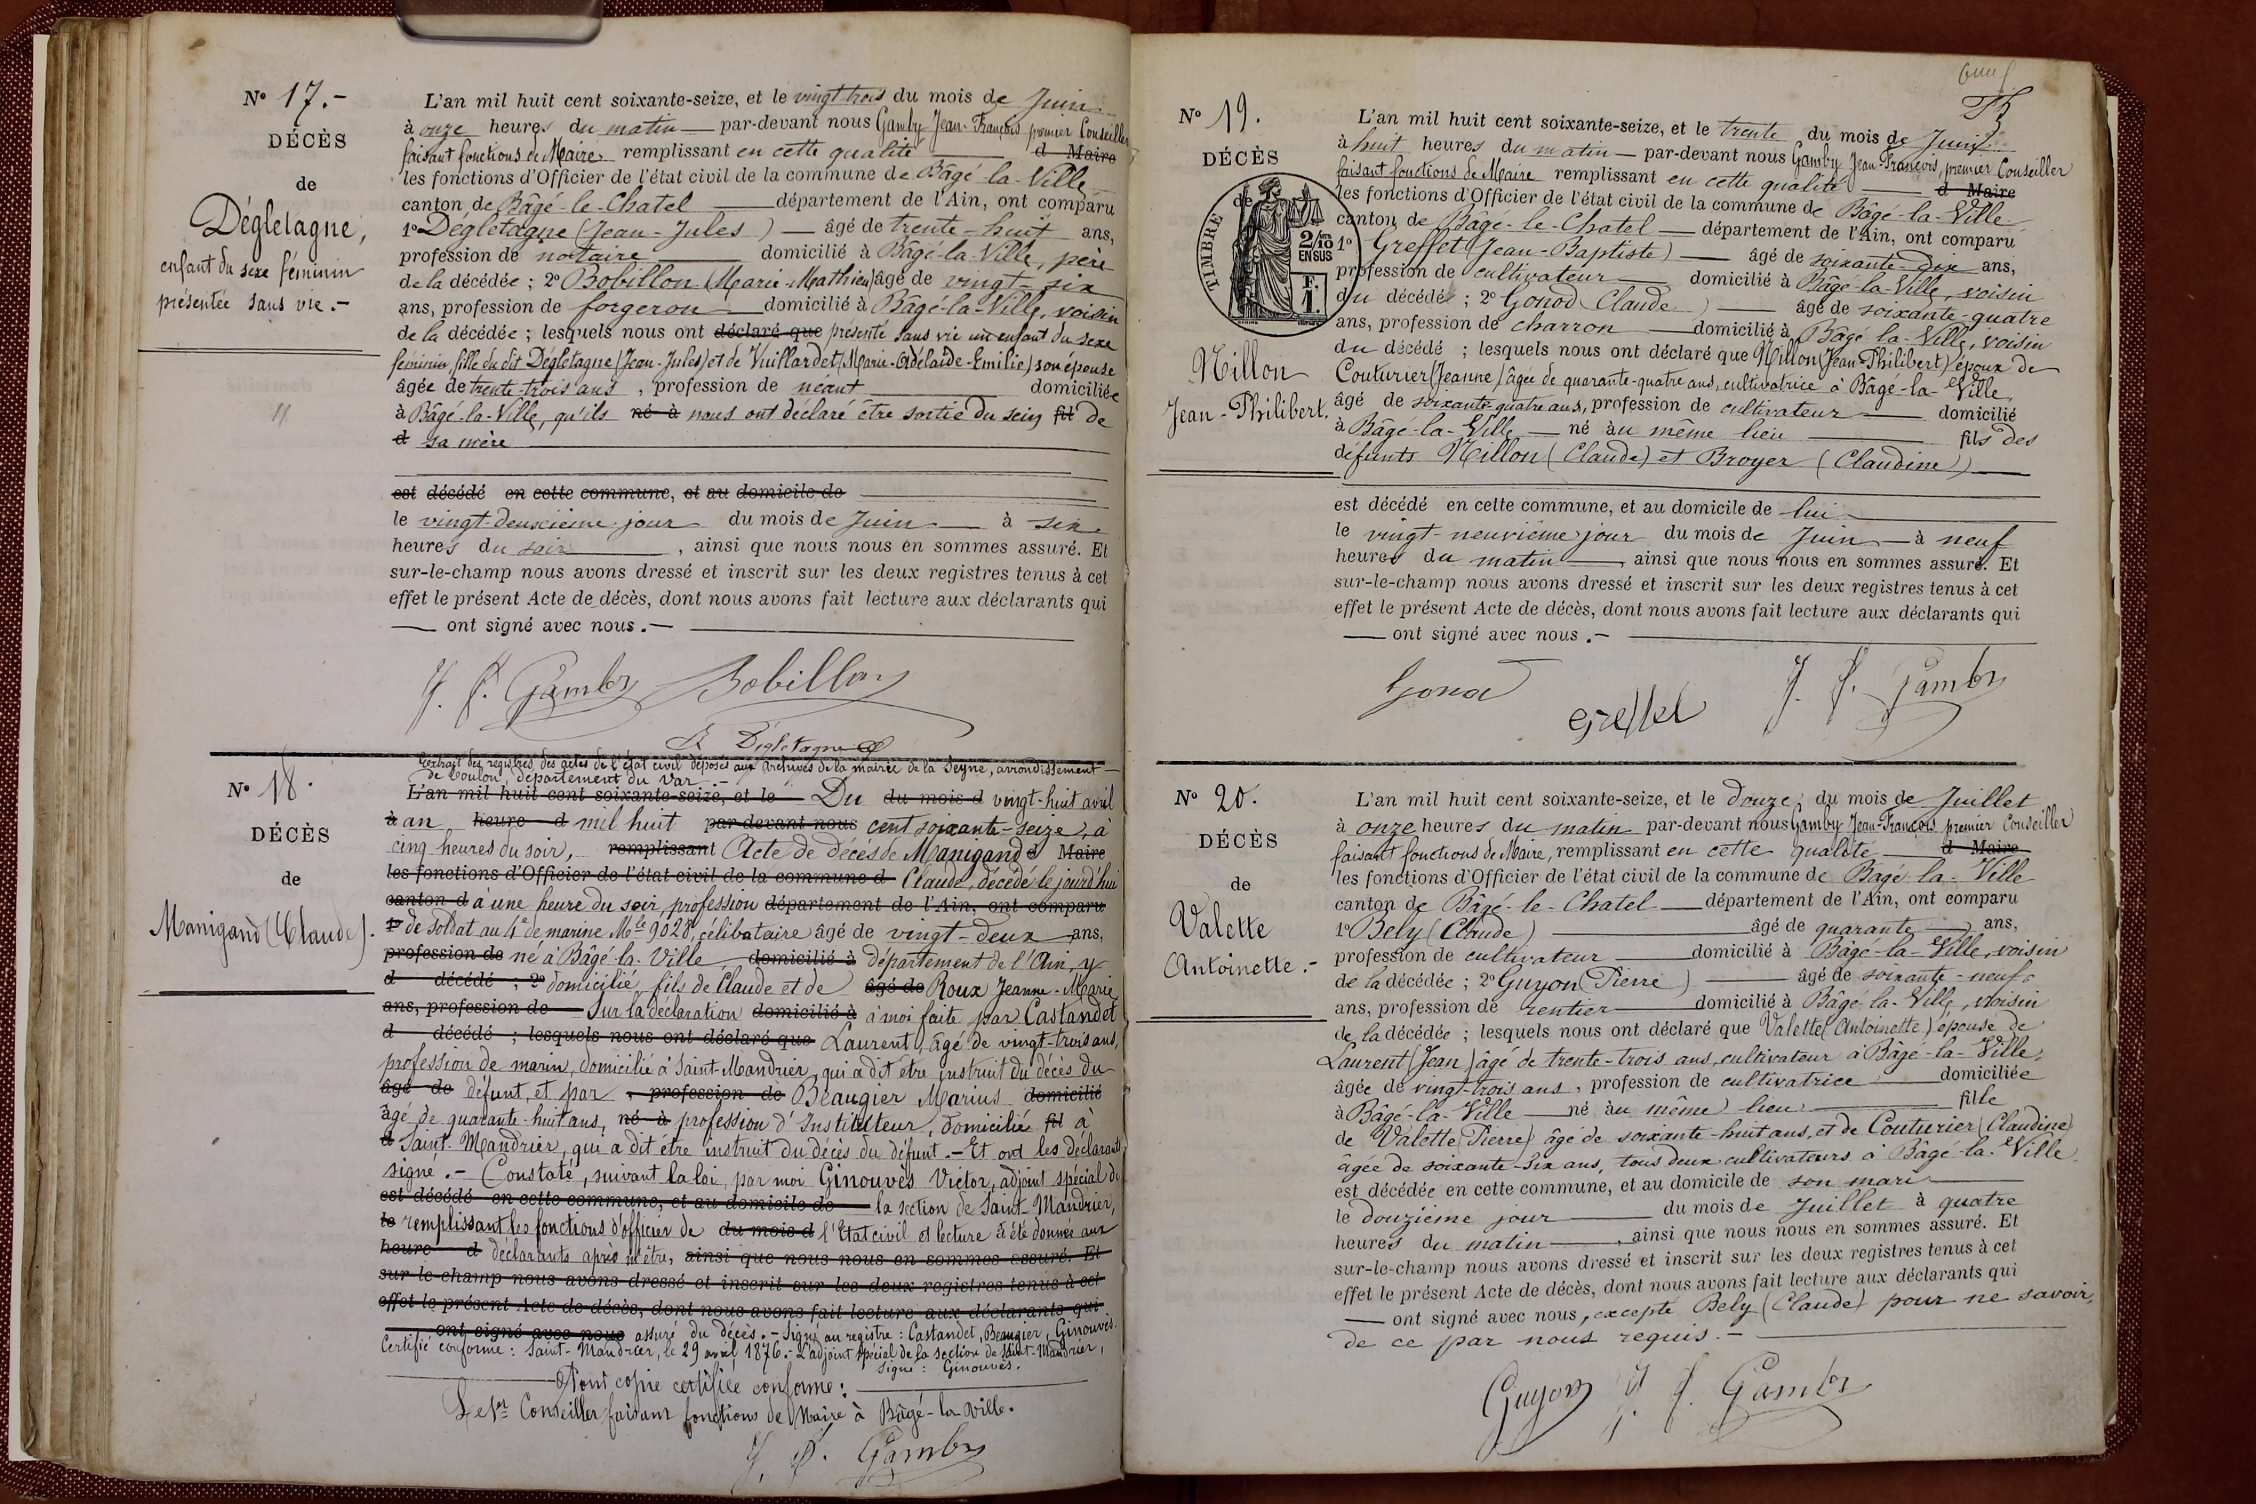 N° 17.-
DÉCÈS
de
Dégletagne,
enfant du sexe féminin
présentée sans vie.-
L'an mil huit cent soixante-seize, et le vingt trois du mois de Juin
à onze heures du matin — par-devant nous Gamby Jean-François premier Conseiller
faisant fonctions de Maire remplissant en cette qualité — d Maire
les fonctions d'Officier de l'état civil de la commune de Bâgé-la-Ville
canton de Bâgé-le-Chatel — département de l'Ain, ont comparu
1° Dégletagne (Jean-Jules) — âgé de trente-huit ans,
profession de notaire — domicilié à Bâgé-la-Ville, père
de la décédée ; 2° Bobillon (Marie-Mathieu) âgé de vingt-six
ans, profession de forgeron — domicilié à Bâgé-la-Ville, voisin
de la décédée ; lesquels nous ont déclaré que présenté sans vie un enfant du sexe
féminin, fille du dit Dégletagne (Jean-Jules) et de Vuillardet (Marie-Adélaïde-Emilie) son épouse
âgée de trente-trois ans , profession de néant — domiciliée
à Bâgé-la-Ville, qu'ils né à nous ont déclaré être sortie du sein fil de
d sa mère
est décédé en cette commune, et au domicile de
le vingt-deuxième jour du mois de Juin — à six
heures du soir — , ainsi que nous nous en sommes assuré. Et
sur-le-champ nous avons dressé et inscrit sur les deux registres tenus à cet
effet le présent Acte de décès, dont nous avons fait lecture aux déclarants qui
— ont signé avec nous.—
J. F. Gamby Bobillon
Dégletagne
N° 18.
DÉCÈS
de
Manigand (Claude).
Extrait des registres des actes de l'état civil déposés aux archives de la mairie de la Seyne, arrondissement
de Toulon, département du Var.-
L'an mil huit cent soixante-seize, et le Du du mois d vingt-huit avril
à an heure d mil huit par-devant nous cent soixante-seize, à
cinq heures du soir, remplissant Acte de décès de Manigand d Maire
les fonctions d'Officier de l'état civil de la commune d Claude, décédé le jourd'hui
canton d à une heure du soir, profession département de l'Ain, ont comparu
1° de soldat au 4e de marine Mle 9028, célibataire âgé de vingt-deux ans,
profession de né à Bâgé-la-Ville domicilié à département de l'Ain, y
d décédé ; 2° domicilié, fils de Claude et de âgé de Roux Jeanne-Marie
ans, profession de Sur la déclaration domicilié à à moi faite par Castandet
d décédé ; lesquels nous ont déclaré que Laurent, âgé de vingt-trois ans,
profession de marin, domicilié à Saint-Mandrier, qui a dit être instruit du décès du
âgé de défunt, et par , profession de Beaugier Marius domicilié
âgé de quarante-huit ans, né à profession d'Instituteur, domicilié fil à
d Saint-Mandrier, qui a dit être instruit du décès du défunt.- Et ont les déclarants
signé.- Constaté, suivant la loi, par moi Ginouvès Victor, adjoint spécial de
est décédé en cette commune, et au domicile de la section de Saint-Mandrier,
le remplissant les fonctions d'officier de du mois d l'Etat civil et lecture a été donnée aux
heure d déclarants après m'être, ainsi que nous nous en sommes assuré. Et
sur-le-champ nous avons dressé et inscrit sur les deux registres tenus à cet
effet le présent Acte de décès, dont nous avons fait lecture aux déclarants qui
ont signé avec nous assuré du décès.- Signé au registre : Castandet, Beaugier, Ginouvès.
Certifié conforme : Saint-Mandrier, le 29 avril 1876.- L'adjoint spécial de la section de Saint-Mandrier,
Signé : Ginouvès.
Pour copie certifiée conforme :
Le 1er Conseiller faisant fonctions de Maire à Bâgé-la-Ville.
J. F. Gamby
N° 19.
DÉCÈS
de
TIMBRE
2/10
EN SUS
F.
1.
Nillon
Jean-Philibert.
L'an mil huit cent soixante-seize, et le trente du mois de Juin
à huit heures du matin — par-devant nous Gamby Jean-François, premier Conseiller
faisant fonctions de Maire remplissant en cette qualité — d Maire
les fonctions d'Officier de l'état civil de la commune de Bâgé-la-Ville
canton de Bâgé-le-Chatel — département de l'Ain, ont comparu
1° Greffet (Jean-Baptiste) — âgé de soixante-dix ans,
profession de cultivateur — domicilié à Bâgé-la-Ville, voisin
du décédé ; 2° Gonod (Claude) — âgé de soixante-quatre
ans, profession de charron — domicilié à Bâgé-la-Ville, voisin
du décédé ; lesquels nous ont déclaré que Nillon (Jean-Philibert) époux de
Couturier (Jeanne) âgée de quarante-quatre ans, cultivatrice à Bâgé-la-Ville
âgé de soixante-quatre ans, profession de cultivateur — domicilié
à Bâgé-la-Ville — né au même lieu — fils des
défunts Nillon (Claude) et Broyer (Claudine)
est décédé en cette commune, et au domicile de lui
le vingt-neuvième jour du mois de Juin — à neuf
heures du matin —, ainsi que nous nous en sommes assuré. Et
sur-le-champ nous avons dressé et inscrit sur les deux registres tenus à cet
effet le présent Acte de décès, dont nous avons fait lecture aux déclarants qui
— ont signé avec nous.—
Gonod Greffet J. F. Gamby
N° 20.
DÉCÈS
de
Valette
Antoinette.-
L'an mil huit cent soixante-seize, et le douze du mois de Juillet
à onze heures du matin par-devant nous Gamby Jean-François premier Conseiller
faisant fonctions de Maire, remplissant en cette qualité d Maire
les fonctions d'Officier de l'état civil de la commune de Bâgé-la-Ville
canton de Bâgé-le-Chatel — département de l'Ain, ont comparu
1° Bely (Claude) — âgé de quarante ans,
profession de cultivateur — domicilié à Bâgé-la-Ville, voisin
de la décédée ; 2° Guyon (Pierre) — âgé de soixante-neuf
ans, profession de rentier — domicilié à Bâgé-la-Ville, voisin
de la décédée ; lesquels nous ont déclaré que Valette (Antoinette) épouse de
Laurent (Jean) âgé de trente-trois ans, cultivateur à Bâgé-la-Ville,
âgée de vingt-trois ans, profession de cultivatrice — domiciliée
à Bâgé-la-Ville — né au même lieu — fille
de Valette (Pierre) âgé de soixante-huit ans, et de Couturier (Claudine)
âgée de soixante-six ans, tous deux cultivateurs à Bâgé-la-Ville
est décédée en cette commune, et au domicile de son mari
le douzième jour — du mois de Juillet à quatre
heures du matin —, ainsi que nous nous en sommes assuré. Et
sur-le-champ nous avons dressé et inscrit sur les deux registres tenus à cet
effet le présent Acte de décès, dont nous avons fait lecture aux déclarants qui
— ont signé avec nous, excepté Bely (Claude) pour ne savoir,
de ce par nous requis.-
Guyon J. F. Gamby